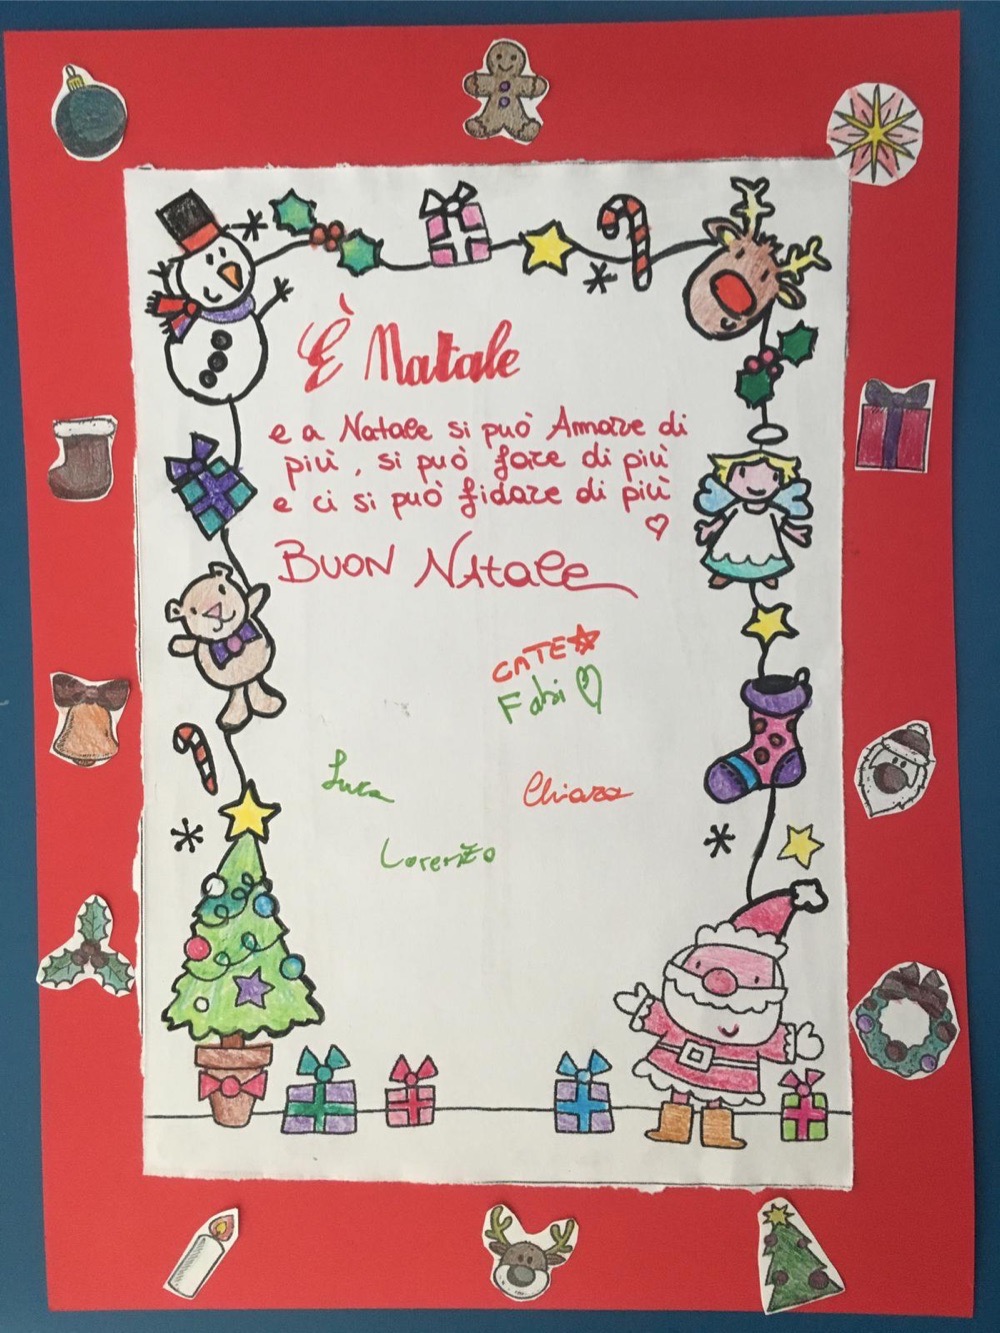 È Natale
e a Natale si può Amare di
più, si può fare di più
e ci si può fidare di più
BUON NATALE
CATE
Fabi
Luca
Chiara
Lorenzo